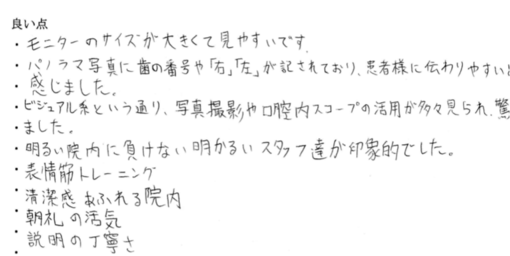 良い点
・モニターのサイズが大きくて見やすいです。
・パノラマ写真に歯の番号や「右」「左」が記されており、患者様に伝わりやすい
・感じました。
・ビジュアル系という通り、写真撮影や口腔内スコープの活用が多々見られ、驚
・ました。
・明るい院内に負けない明かるいスタッフ達が印象的でした。
・表情筋トレーニング
・清潔感あふれる院内
・朝礼の活気
・説明の丁寧さ
・